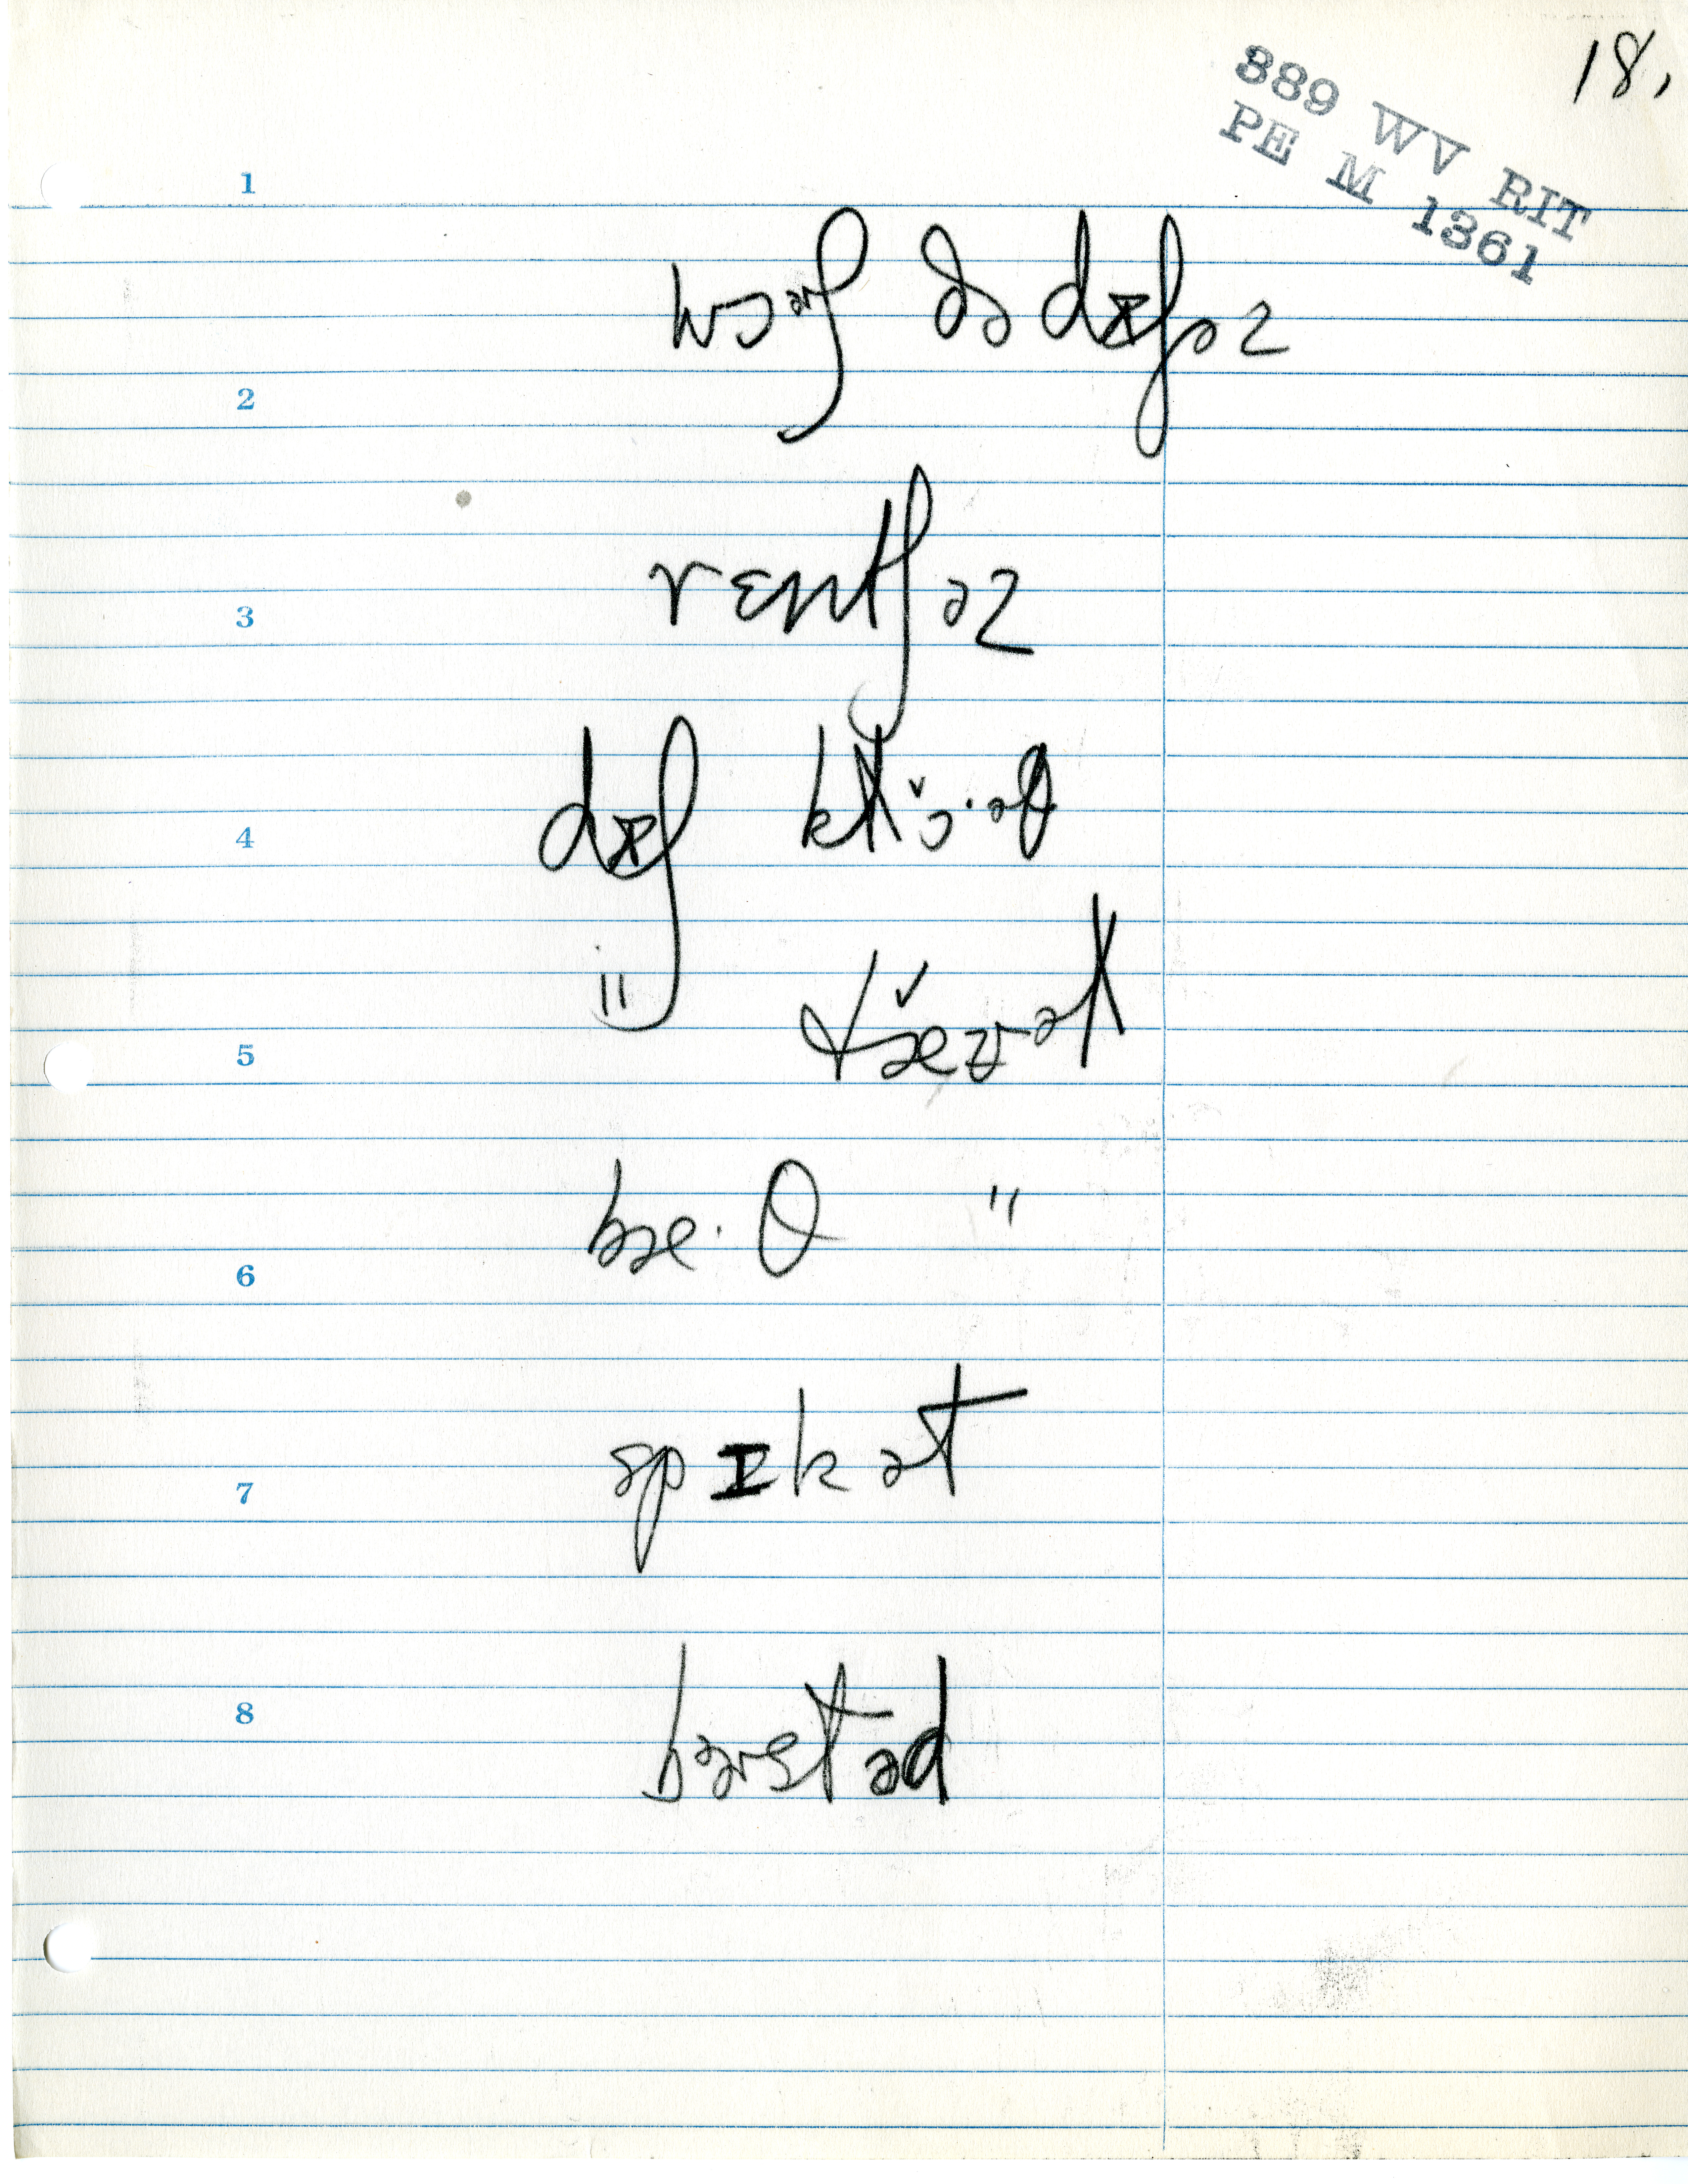 18,
389 WV RIT
PE M 1361
1
wɔɚʃ ðə dɪʃəz
2
rɛntʃəz
3
dɪʃ klɔ̌·əθ
4
" dræ̌ɪnət
5
bæ·θ "
6
spɪkət
7
bɚstəd
8